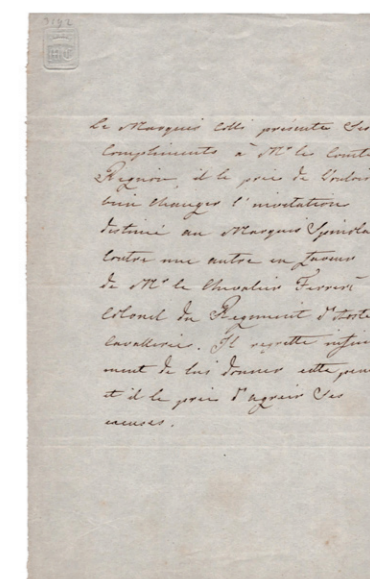 3192
Le Marquis Colli présente Ses
Compliments à Mr le Comte
il le prie de Vouloir
bien changer l'invitation
destiné au Marquis Spinola
Contre une autre en faveur
de Mr le Chevalier Ferrer
Colonel du Regiment d'Aoste
Cavallerie. Il regrette infini
ment de lui donner cette pein
et il le prie d'agréer Ses
excuses.